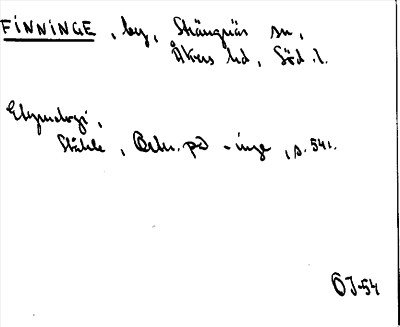 FINNINGE, by, Strängnäs sn,
Åkers hd, Söd. l.
Etymologi,
Ståhle, Ortn. på -inge, s. 541.
ÖJ-54